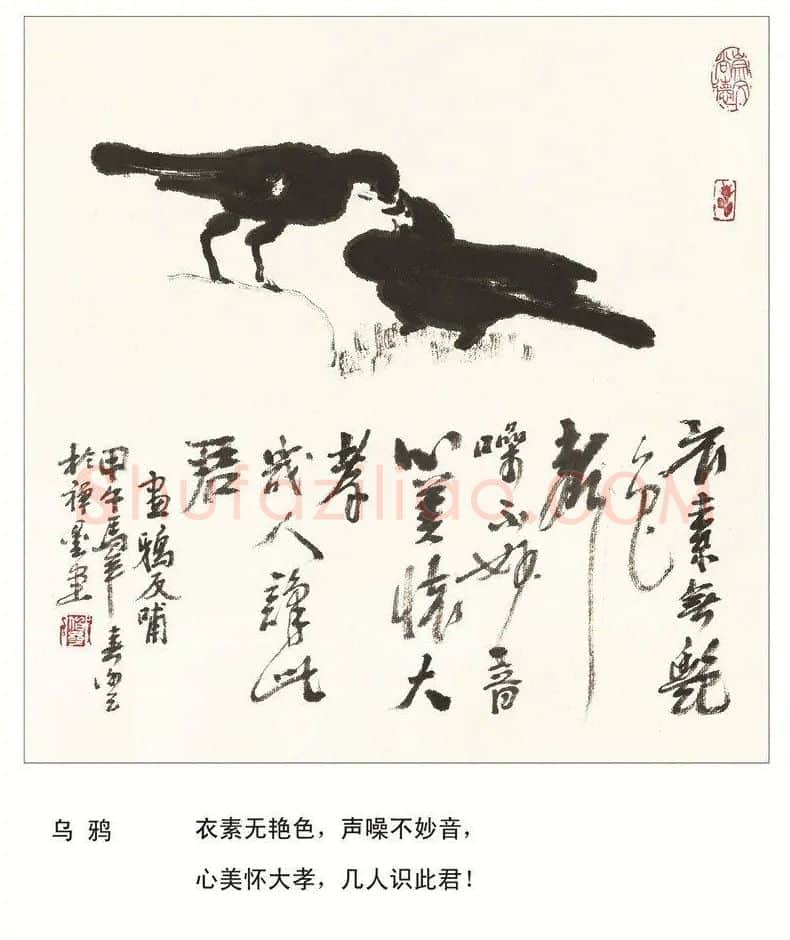 崇文尚德
衣素無艷
色
聲
噪不妙音
心美懷大
孝
幾人識此
君
畫鴉反哺
甲午馬年春
於禪墨堂
Shufaziliao.COM
乌 鸦
衣素无艳色，声噪不妙音，
心美怀大孝，几人识此君！